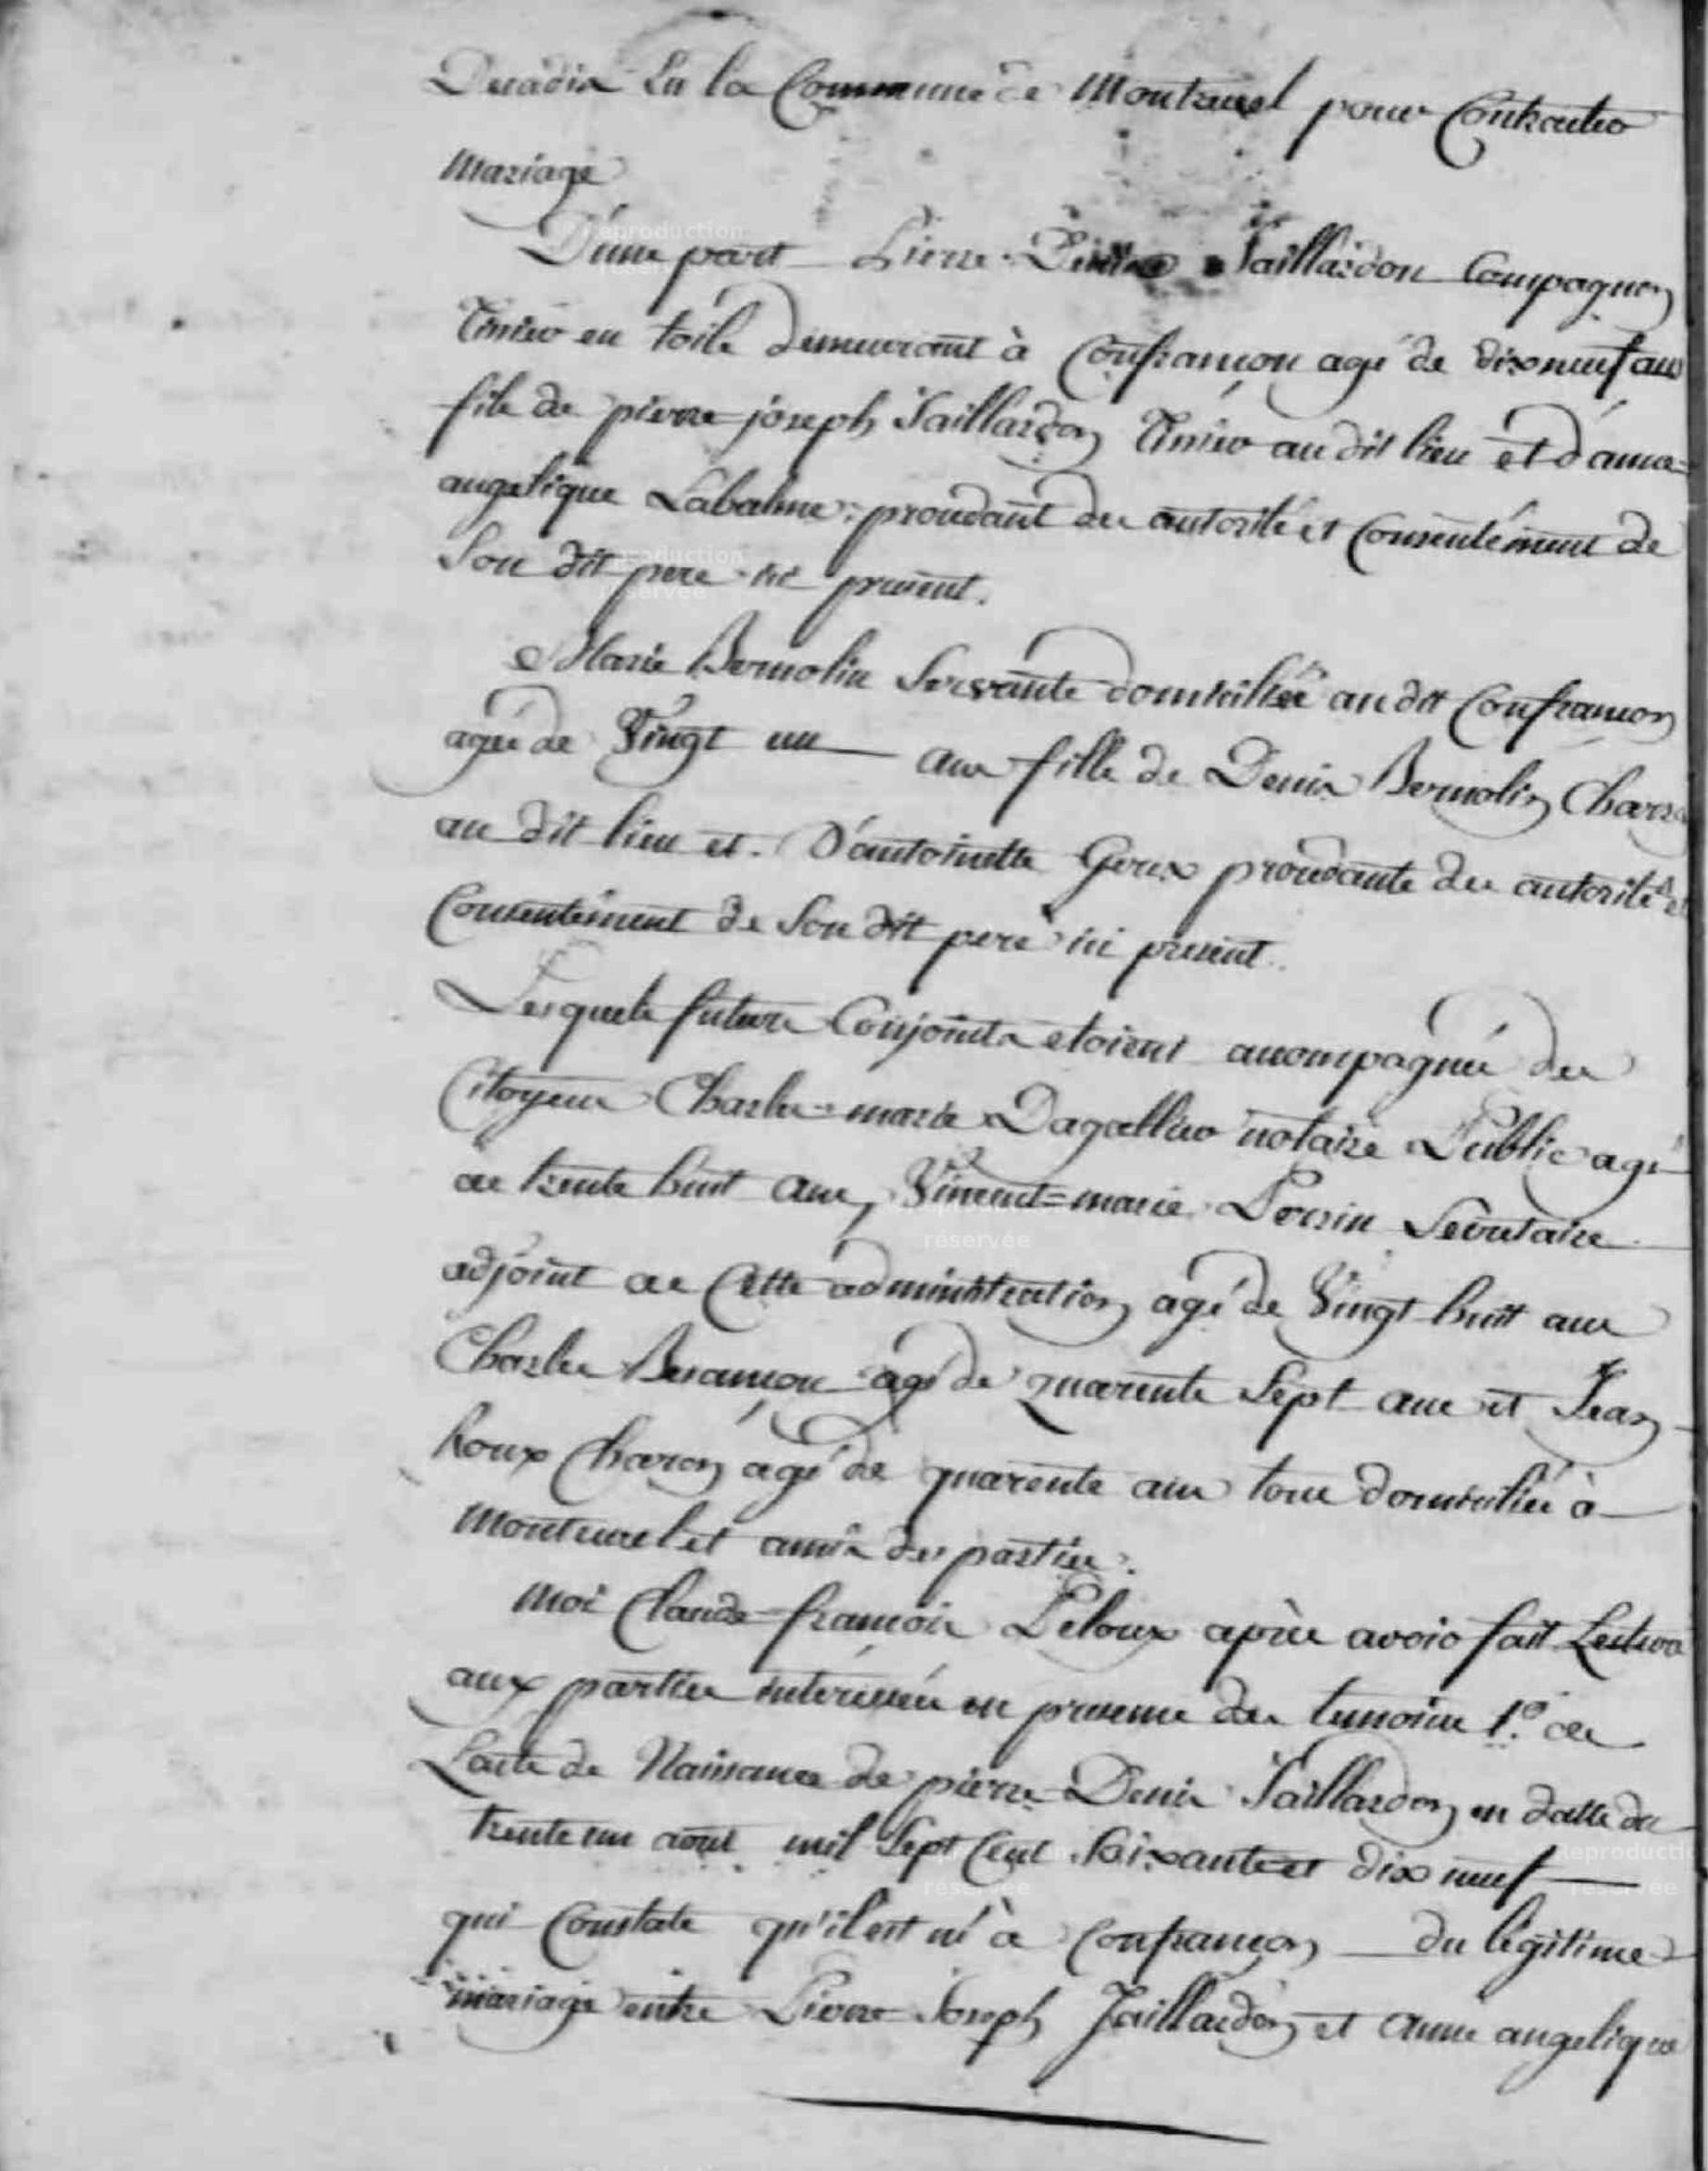 Decadis En la Commune de Montrevel pour Contracter
Mariage
D'une part Pierre Denis Jaillardon Compagnon
Tissier en toile demeurant à Confrançon agé de dix neuf ans
fils de pierre joseph Jaillardon Tissier au dit lieu et d'anne
angelique Labalme: procedant des autorité et Consentement de
Son dit pere ici present.
Marie Bernolin Servante domiciliée au dit Confrançon
agée de Vingt un ans fille de Denis Bernolin Charon
au dit lieu et. D'antoinette Goux procedante des autorité et
Consentement de Son dit pere ici present.
Lesquels futurs Conjoints etoient accompagnés des
Citoyens Charles-marie Dagallier notaire Public agé
de trente huit ans, Vincent=marie Perrin Secretaire
adjoint de Cette administration agé de Vingt huit ans
Charles Besançon agé de quarente Sept ans et Jean
Roux Charon agé de quarente ans tous domiciliés à
Montrevel et amis des parties:
Moi Claude-françois Peloux après avoir fait Lecture
aux parties interessées en presence des temoins 1.º de
L'acte de Naissance de pierre Denis Jaillardon en datte du
trente un aout mil Sept Cent Soixante et dix neuf
qui Constate qu'il est né à Confrançon du légitime
mariage entre Pierre Joseph Jaillardon et anne angelique